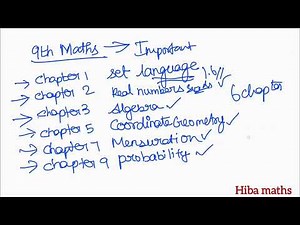 9th Maths → Important
→ chapter 1 set language 1.6//
→ chapter 2 Real numbers
→ chapter 3 Algebra ✓
→ chapter 5 Coordinate Geometry ✓
→ chapter 7 Mensuration ✓
→ chapter 9 probability ✓
6 chapter
Hiba maths